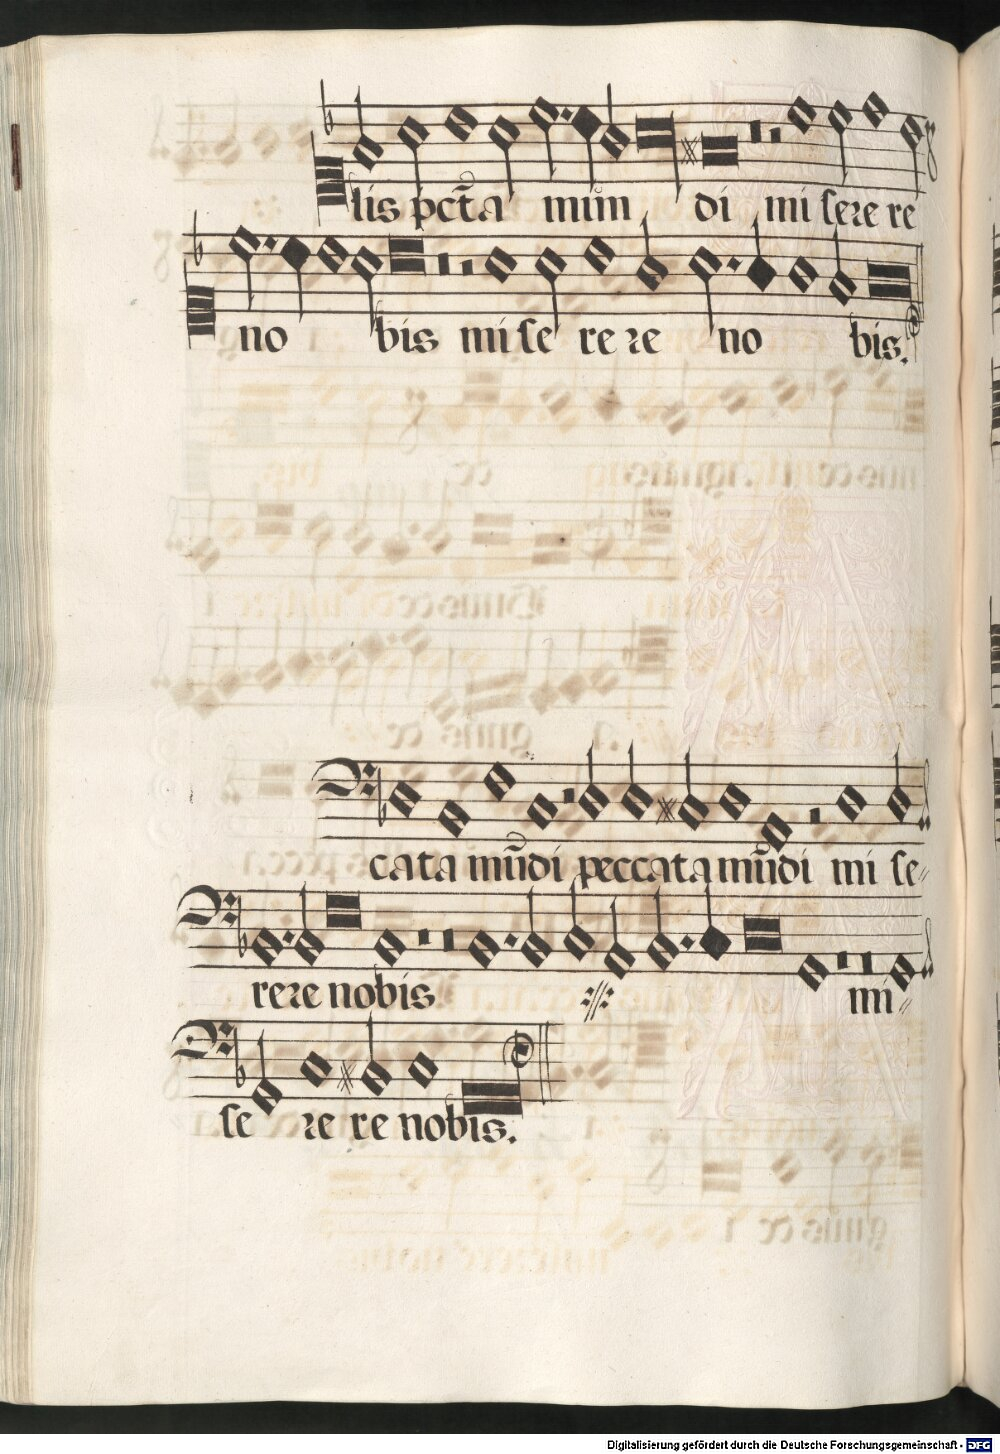 lis pct̄a mūn di mi serere
no bis mi se re re no bis.
cata mūdi peccata mūdi mi se〃
rere nobis mi〃
se re re nobis.
Digitalisierung gefördert durch die Deutsche Forschungsgemeinschaft - DFG